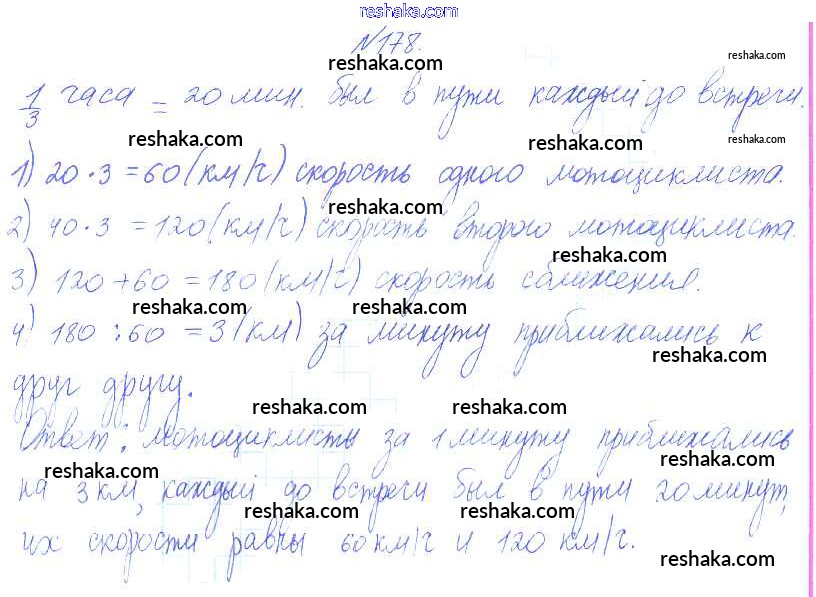 reshaka.com
N178.
reshaka.com reshaka.com
1/3 часа = 20 мин. был в пути каждый до встречи.
reshaka.com reshaka.com reshaka.com
1) 20 · 3 = 60 (км/ч) скорость одного мотоциклиста.
reshaka.com
2) 40 · 3 = 120 (км/ч) скорость второго мотоциклиста.
reshaka.com
3) 120 + 60 = 180 (км/ч) скорость сближения.
reshaka.com reshaka.com
4) 180 : 60 = 3 (км) за минуту приближались к
reshaka.com
друг другу.
reshaka.com reshaka.com
Ответ: мотоциклисты за 1 минуту приближались
reshaka.com reshaka.com
на 3 км, каждый до встречи был в пути 20 минут,
reshaka.com reshaka.com
их скорости равны 60 км/ч и 120 км/ч.
reshaka.com